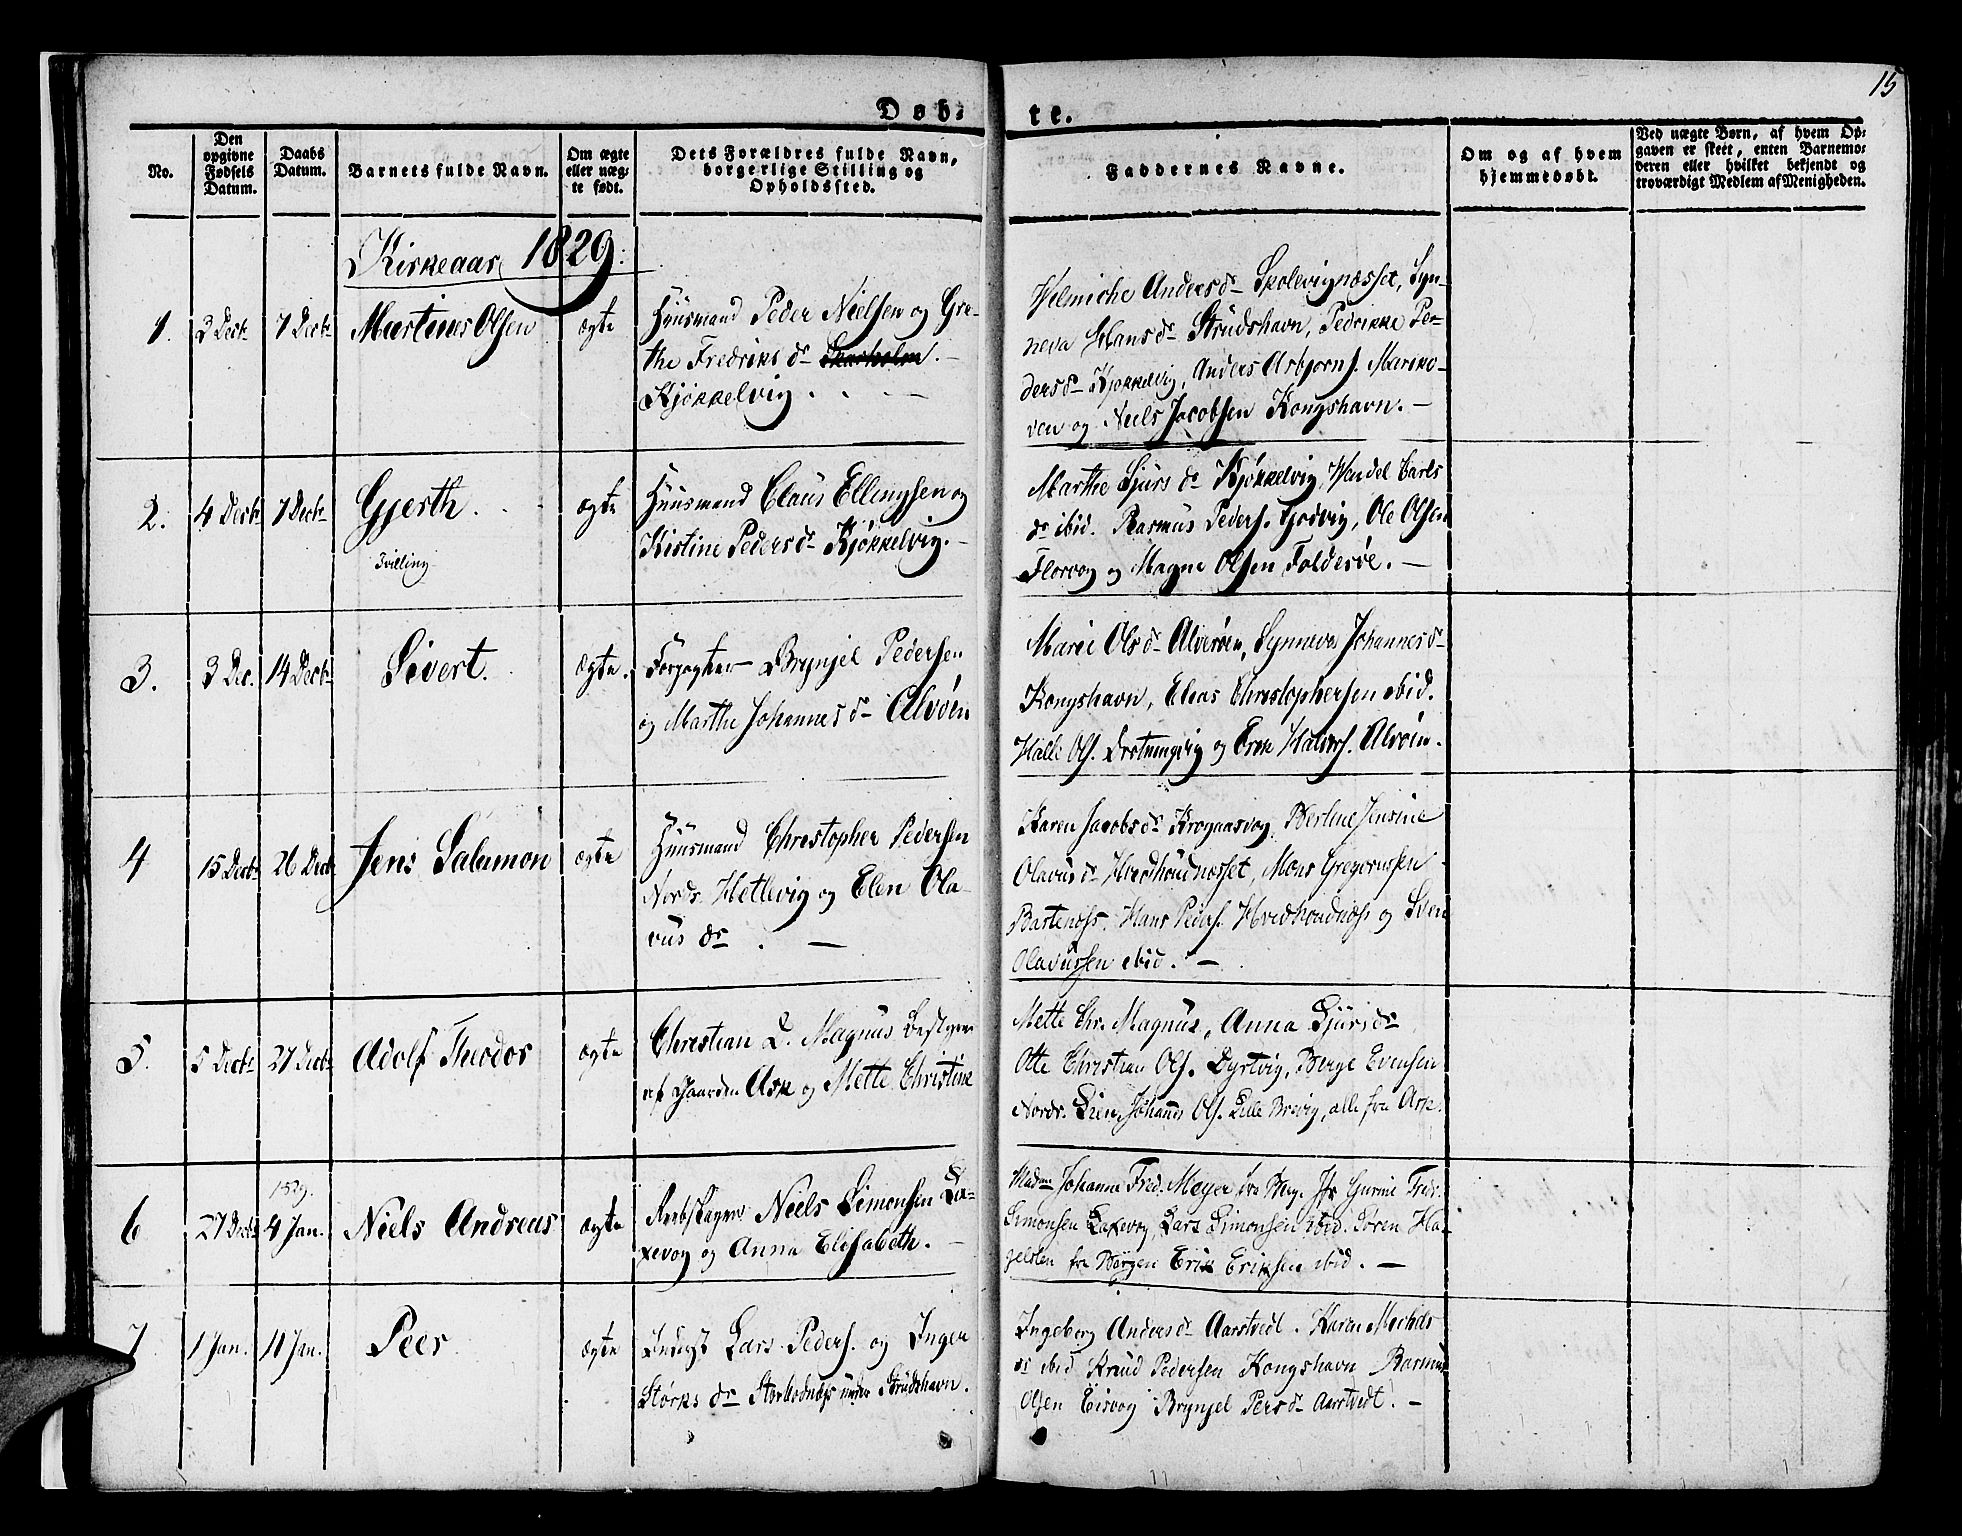 15
Døb- te.
No.
Den opgivne Fødsels Datum.
Daabs Datum.
Barnets fulde Navn.
Om ægte eller uægte født.
Dets Forældres fulde Navn, borgerlige Stilling og Opholdssted.
Faddernes Navne.
Om og af hvem hjemmedøbt.
Ved uægte Børn, af hvem Opgaven er skeet, enten Barnemoderen eller hvilket bekjendt og troværdigt Medlem af Menigheden.
Kirkeaar 1829.
1. 3 Decbr 7 Decbr Martinus Olsen ægte
Huusmand Peder Nielsen og Gre-
the Fredriks dr Skarholm. -
Kjøkkelvig . . . -
Helmiche Anders dr Skolevignæsset, Syn-
neva Hans dr Strudshavn, Pedrikke Pe-
ders dr Kjøkkelvig, Anders Asbjørns. Mariko-
ven og Niels Jacobsen Kongshavn. -
2. 4 Decbr 7 Decbr Gjerth . . ægte
Tvilling
Huusmand Claus Ellingsen og
Kistine Peders dr Kjøkkelvig. -
Marthe Sjurs dr Kjøkkelvig, Wendel Carls
dr ibid. Rasmus Peders. Godvig, Ole Olsen
Florvog og Magne Olsen Folderøe. -
3. 3 Dec. 14 Decbr Sivert. ægte.
Forpagter Brynjel Pedersen
og Marthe Johannes dr Alvøen
Marie Ols dr Alverøen, Synneva Johannes dr
Kongshavn, Elias Christophersen ibid.
Halle Ols. Drotningvig og Erik Halvers. Alvøen.
4 15 Decbr 26 Decbr Jens Salamon ægte
Huusmand Christopher Pedersen
Nords. Hetlevig og Elen Ola-
vus dr . -
Karen Jacobs dr Krogaasvog, Berline Jensine
Olavus dr Hvidhoudnæsset, Mons Gregoriussen
Bartenæss. Hans Peders. Hvidhoudnæss og Sven
Olavussen ibid. -
5. 5 Decbr 27 Decbr Adolf Theodor ægte
Christian L. Magnus Bestyrer
af Gaarden Ask og Mette Christine
Mette Chr. Magnus, Anna Sjurs dr
Otte Christian Ols. Dyrtvig, Berge Evensen
Nords. Lien, Johannes Ols. Lille Brevig, alle fra Ask.
6 27 Decbr 1829. 4 Jan. Niels Andreas ægte
Niels Simonsen La-
xevog og Anna Elisabeth. -
Madme Johanne Fred. Meyer fra Berg. Jfr Gurine Fred.
Simonsen Laxevog, Lars Simonsen ibid. Søren Ha-
gelsten fra Bergen Erik Eriksen ibid. -
7 1 Jan. 11 Jan. Peer ægte
Inderst Lars Peders. og Inger
Størks dr Storbodnæss under Strudshavn.
Ingeborg Anders dr Aarstvedt. Karen Michels
dr ibid Knud Pedersen Kongshavn Rasmus
Olsen Eisvog Brynjel Pers dr Aarstvedt. -